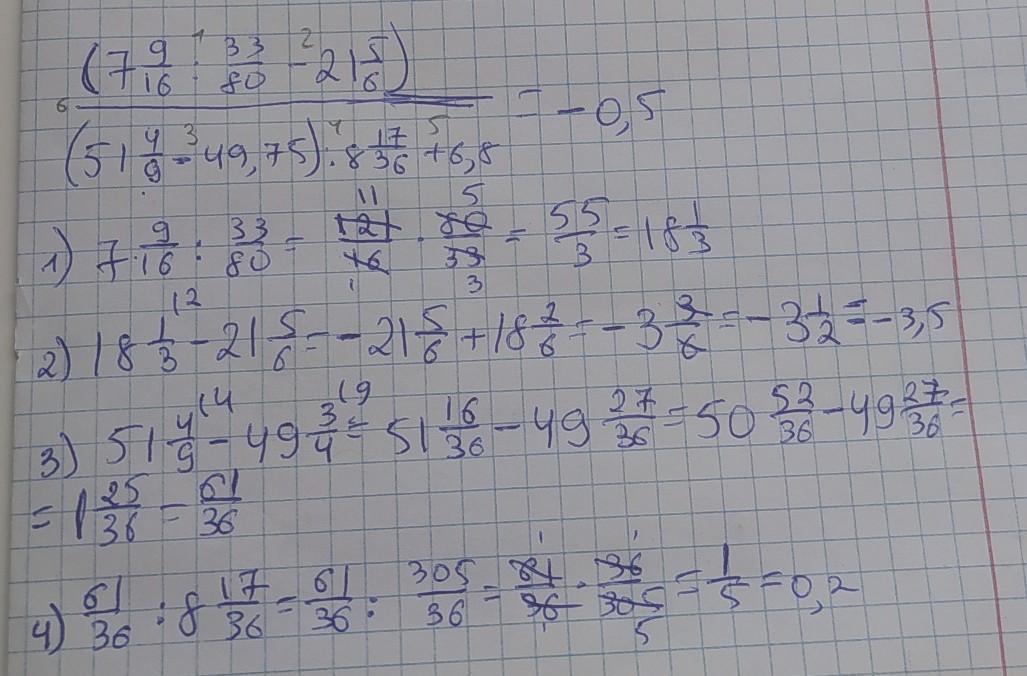 (7 9/16 : 33/80 - 21 5/6)
(51 4/9 - 49,75) : 8 17/36 + 6,8 = -0,5
1) 7 9/16 : 33/80 = 121/16 · 80/33 = 55/3 = 18 1/3
2) 18 1/3 - 21 5/6 = -21 5/6 + 18 2/6 = -3 3/6 = -3 1/2 = -3,5
3) 51 4/9 - 49 3/4 = 51 16/36 - 49 27/36 = 50 52/36 - 49 27/36 =
= 1 25/36 = 61/36
4) 61/36 : 8 17/36 = 61/36 : 305/36 = 61/36 · 36/305 = 1/5 = 0,2